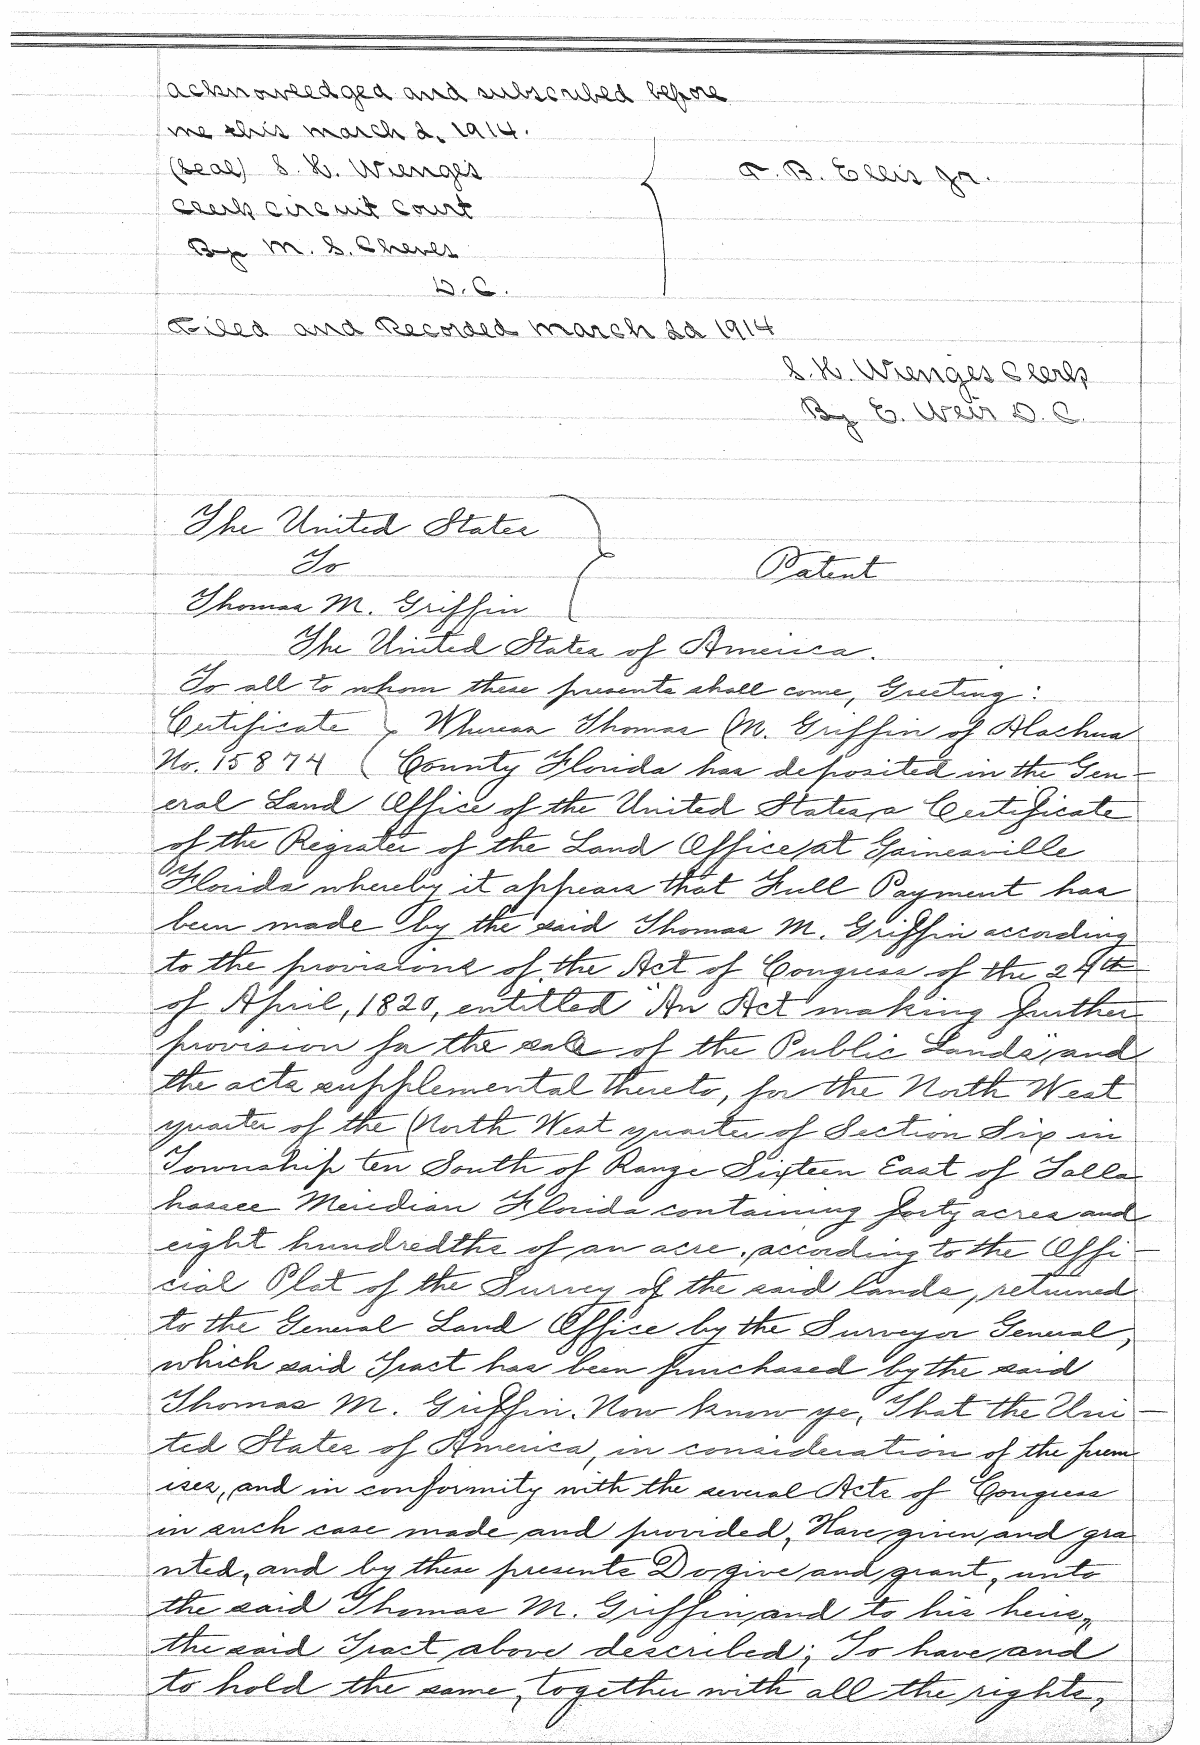 acknowledged and subscribed before
me this march 2, 1914.
(Seal) S. H. Wienges
Clerk Circuit Court
By M. S. Cheves
D.C.
T. B. Ellis Jr.
Filed and Recorded March 2d 1914
S. H. Wienges Clerk
By E. Weir D. C.
The United States
To
Thomas M. Griffin
Patent
The United States of America.
To all to whom these presents shall come, Greeting:
Certificate Whereas Thomas M. Griffin of Alachua
No. 15874 County Florida has deposited in the Gen-
eral Land Office of the United States, a Certificate
of the Register of the Land Office, at Gainesville
Florida whereby it appears that Full Payment has
been made by the said Thomas M. Griffin according
to the provisions of the Act of Congress of the 24th
of April, 1820, entitled "An Act making further
provision for the sale of the Public Lands," and
the acts supplemental thereto, for the North West
quarter of the North West quarter of Section Six in
Township ten South of Range Sixteen East of Talla
hassee Meridian Florida containing forty acres and
eight hundredths of an acre, according to the Offi-
cial Plat of the Survey of the said lands, returned
to the General Land Office by the Surveyor General,
which said Tract has been purchased by the said
Thomas M. Griffin. Now know ye, That the Uni-
ted States of America, in consideration of the prem
ises, and in conformity with the several Acts of Congress
in such case made and provided, Have given and gra
nted, and by these presents Do give and grant, unto
the said Thomas M. Griffin, and to his heirs,
the said Tract above described; To have and
to hold the same, together with all the rights,